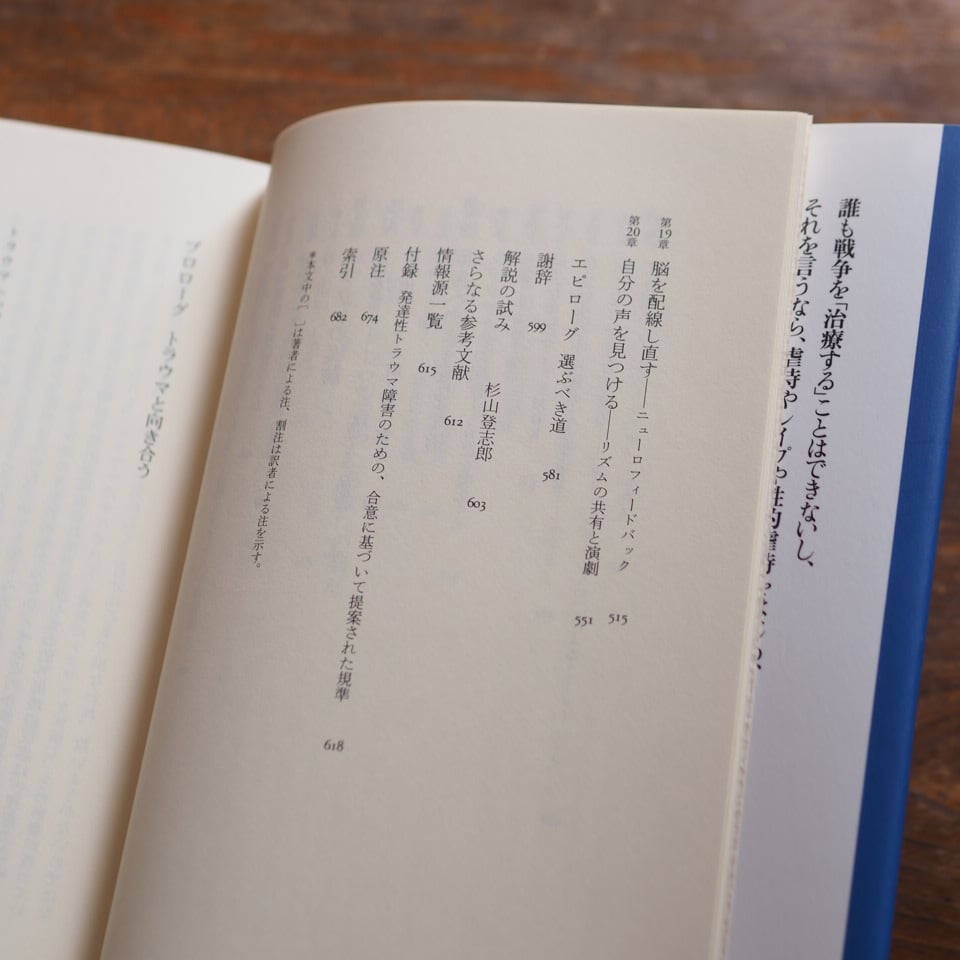 誰も戦争を「治療する」ことはできないし、
それを言うなら、虐待やレイプや性的虐待
第19章 脳を配線し直す――ニューロフィードバック 515
第20章 自分の声を見つける――リズムの共有と演劇 551
エピローグ 選ぶべき道 581
謝辞 599
解説の試み 杉山登志郎 603
さらなる参考文献 612
情報源一覧 615
付録 発達性トラウマ障害のための、合意に基づいて提案された規準 618
原注 674
索引 682
＊本文中の［ ］は著者による注、割注は訳者による注を示す。
プロローグ トラウマと向き合う